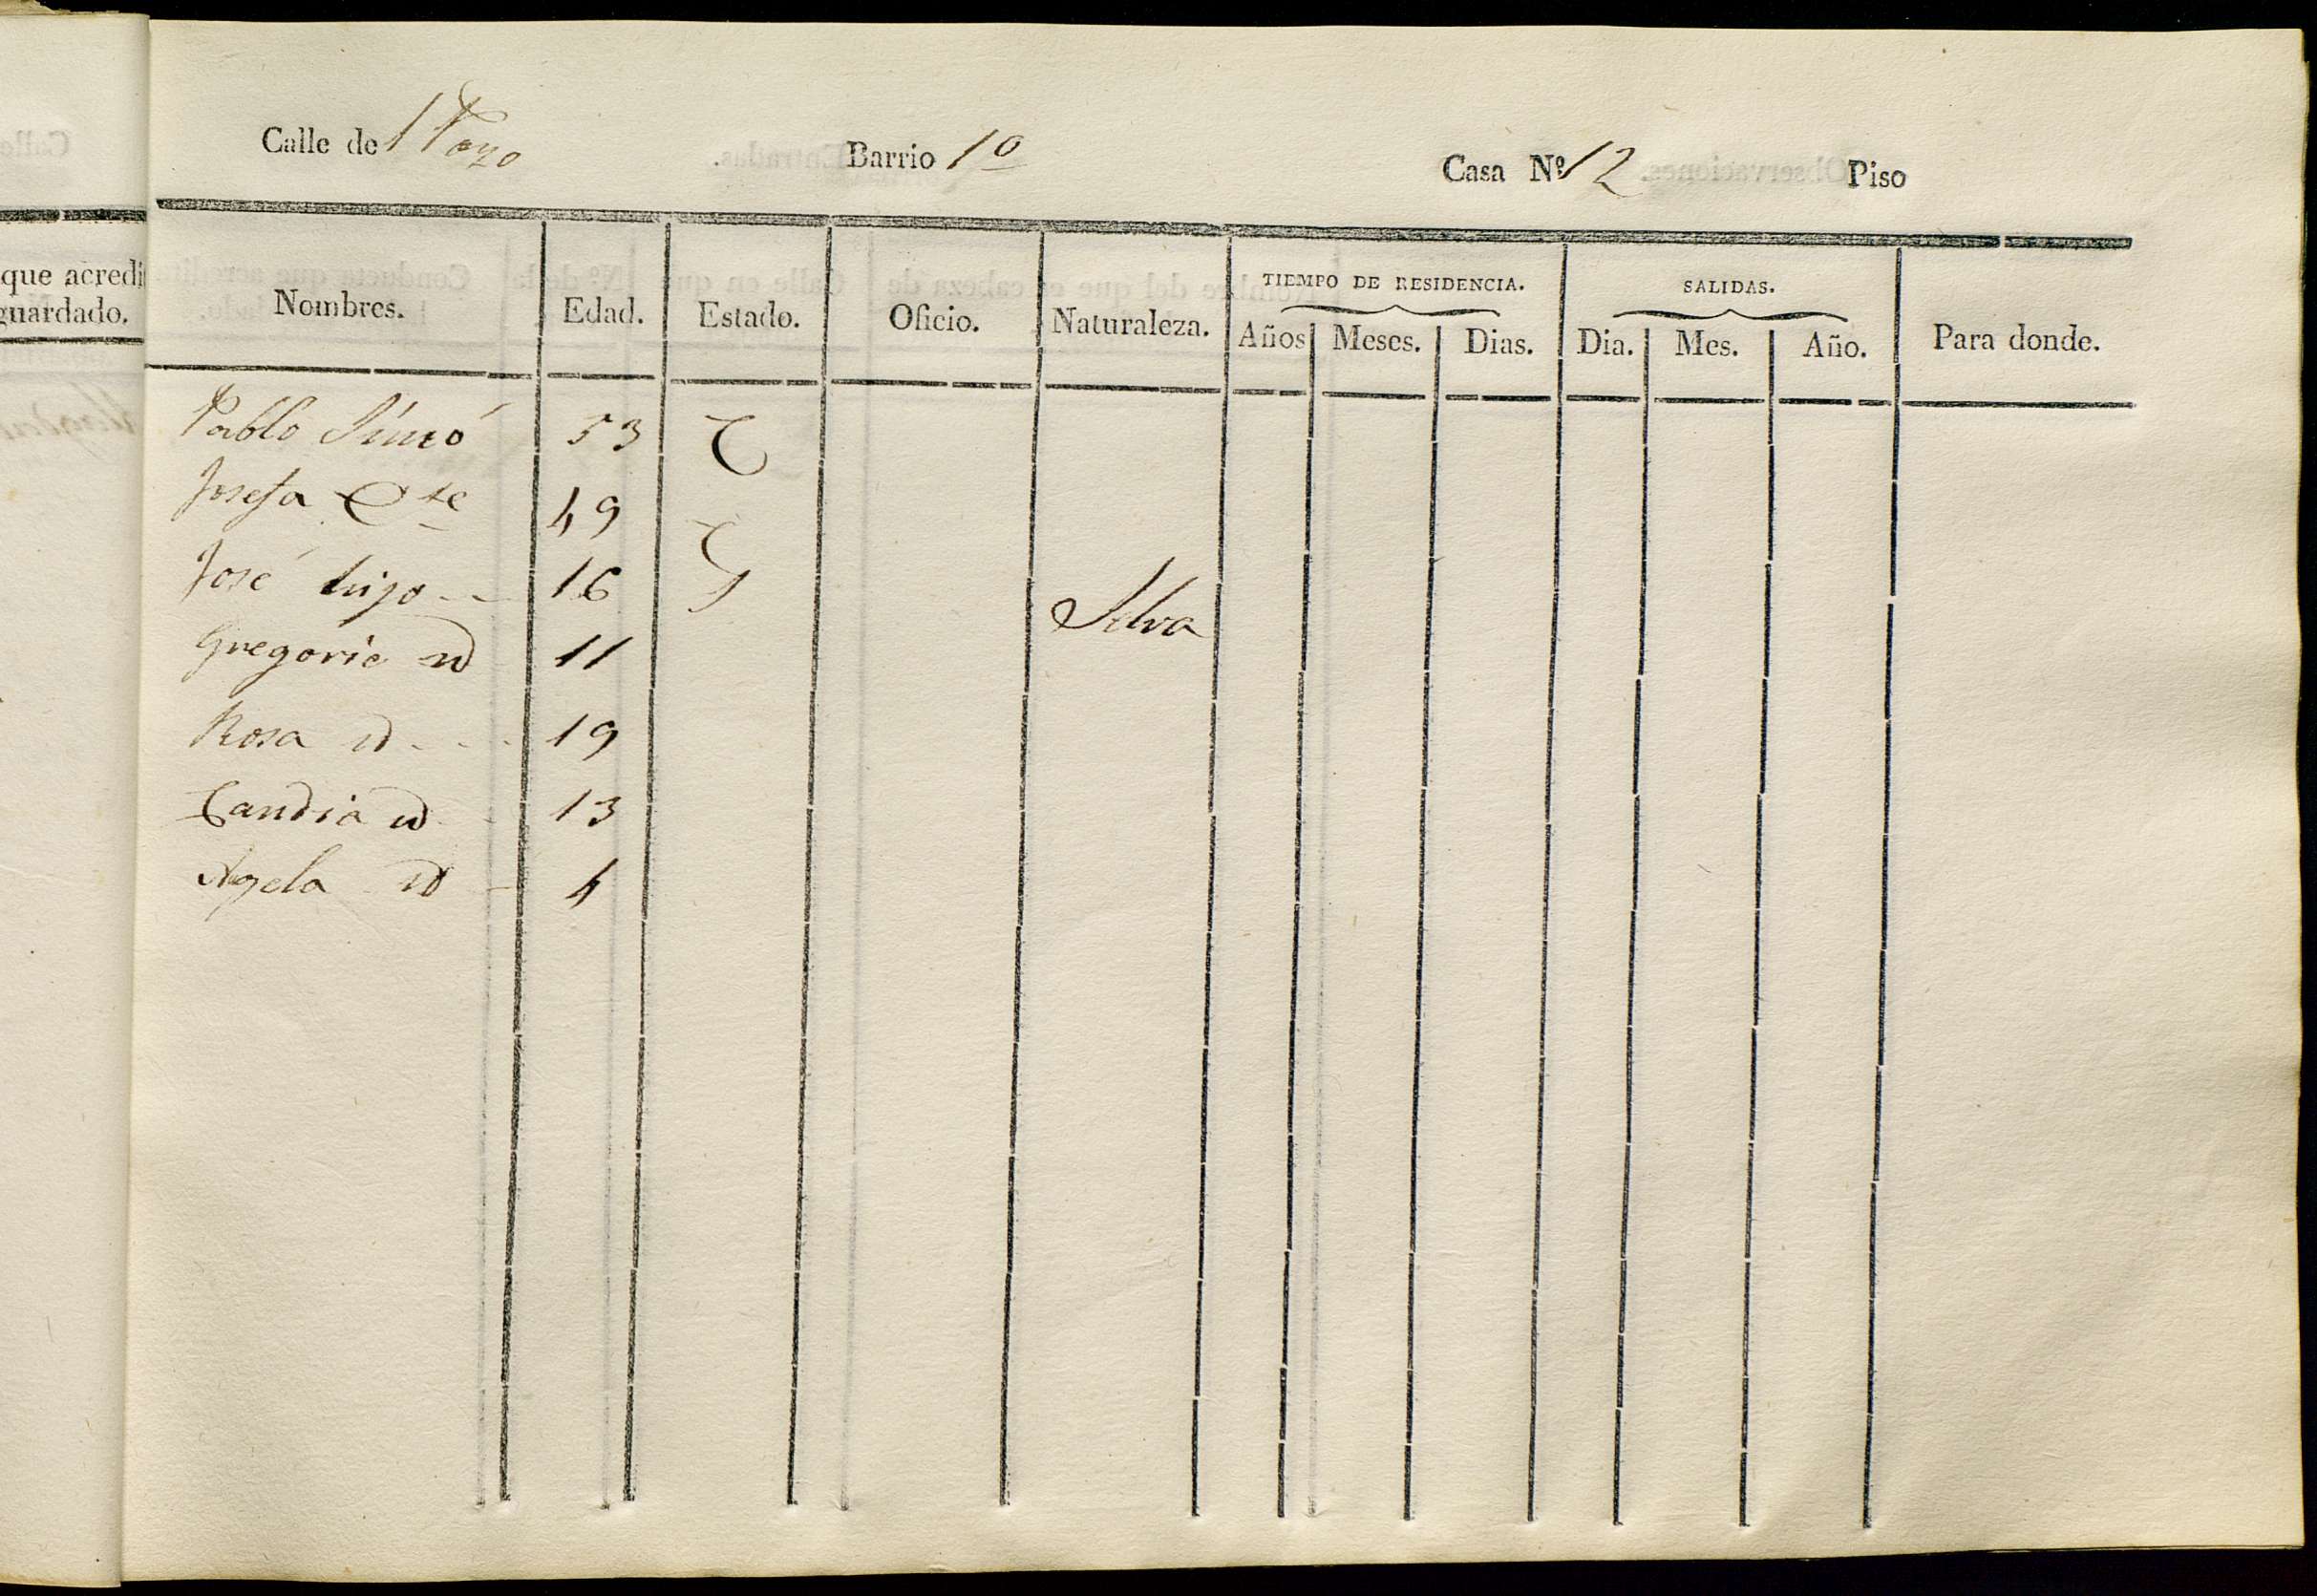 que acredi
guardado.
Calle del Pozo Barrio 1º Casa Nº 12 Piso
Nombres. Edad. Estado. Oficio. Naturaleza. TIEMPO DE RESIDENCIA. Años Meses. Dias. SALIDAS. Dia. Mes. Año. Para donde.
Pablo Simó 53 C
Josefa 49 C
José hijo 16 S Selva
Gregorio id 11
Rosa id 19
Candia id 13
Agela id 4